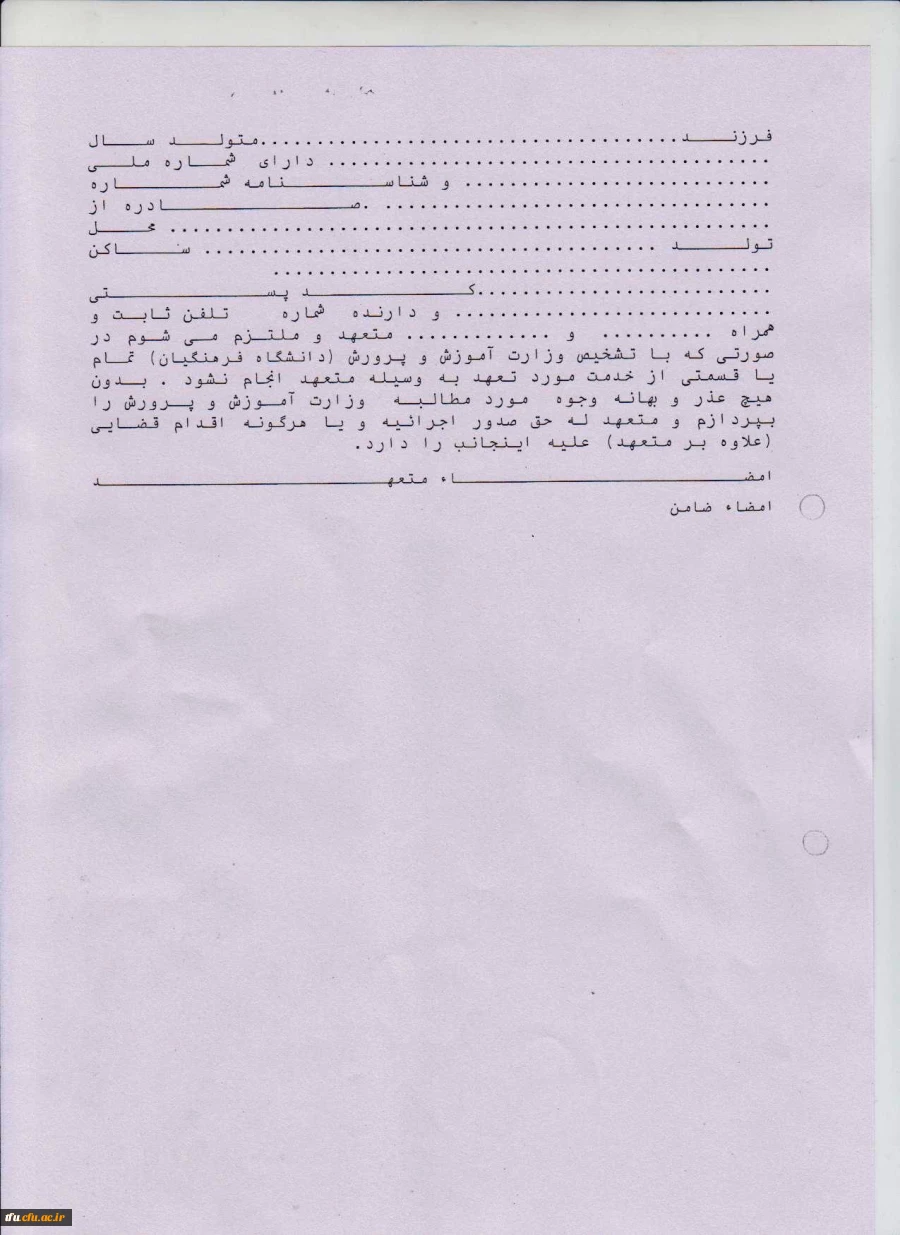 فرزنـــد.....................................متولـــد ســـال
....................................... دارای شمـــاره ملـــی
........................... و شناســـنامه شمـــاره
.................................. .صـــادره از
..................................................... محـــل
تولـــد ........................................ ســـاکن
............................................
..........................کـــد پســـتی
............................ و دارنده شماره تلفن ثابت و
همراه .......... و ............. متعهد و ملتزم می شوم در
صورتی که با تشخیص وزارت آموزش و پرورش (دانشگاه فرهنگیان) تمام
یا قسمتی از خدمت مورد تعهد به وسیله متعهد انجام نشود . بدون
هیچ عذر و بهانه وجوه مورد مطالبه وزارت آموزش و پرورش را
بپردازم و متعهد له حق صدور اجرائیه و یا هرگونه اقدام قضایی
(علاوه بر متعهد) علیه اینجانب را دارد.
امضـــاء متعهـــد
امضاء ضامن
tfu.cfu.ac.ir